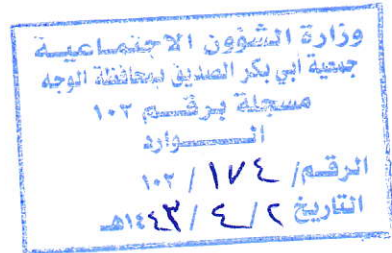 وزارة الشؤون الاجتماعية
جمعية أبي بكر الصديق بمحافظة الوجه
مسجلة برقم ١٠٢
الوارد
الرقم/ ١٧٤ / ١٠٢
التاريخ ٢ / ٤ / ١٤٤٣هـ